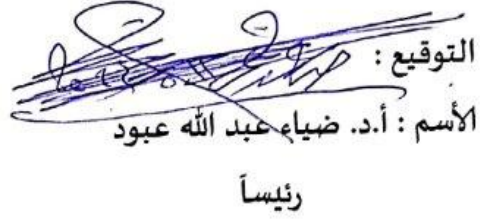 التوقيع :
الأسم : أ.د. ضياء عبد الله عبود
رئيساَ